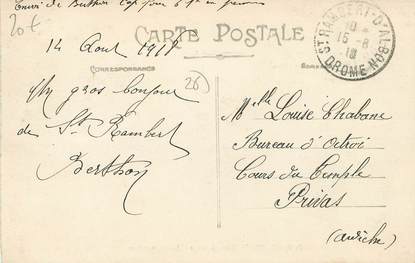 Envoi de Berthon
20 €
CARTE POSTALE
14 Aout 1918
CORRESPONDANCE
26
ST RAMBERT-D'ALBON
15-8
18
DROME
un gros bonjour
de St Rambert
Berthon
Mlle Louise Chabane
Bureau d'Octroi
Cours du Temple
Privas
(Ardèche)